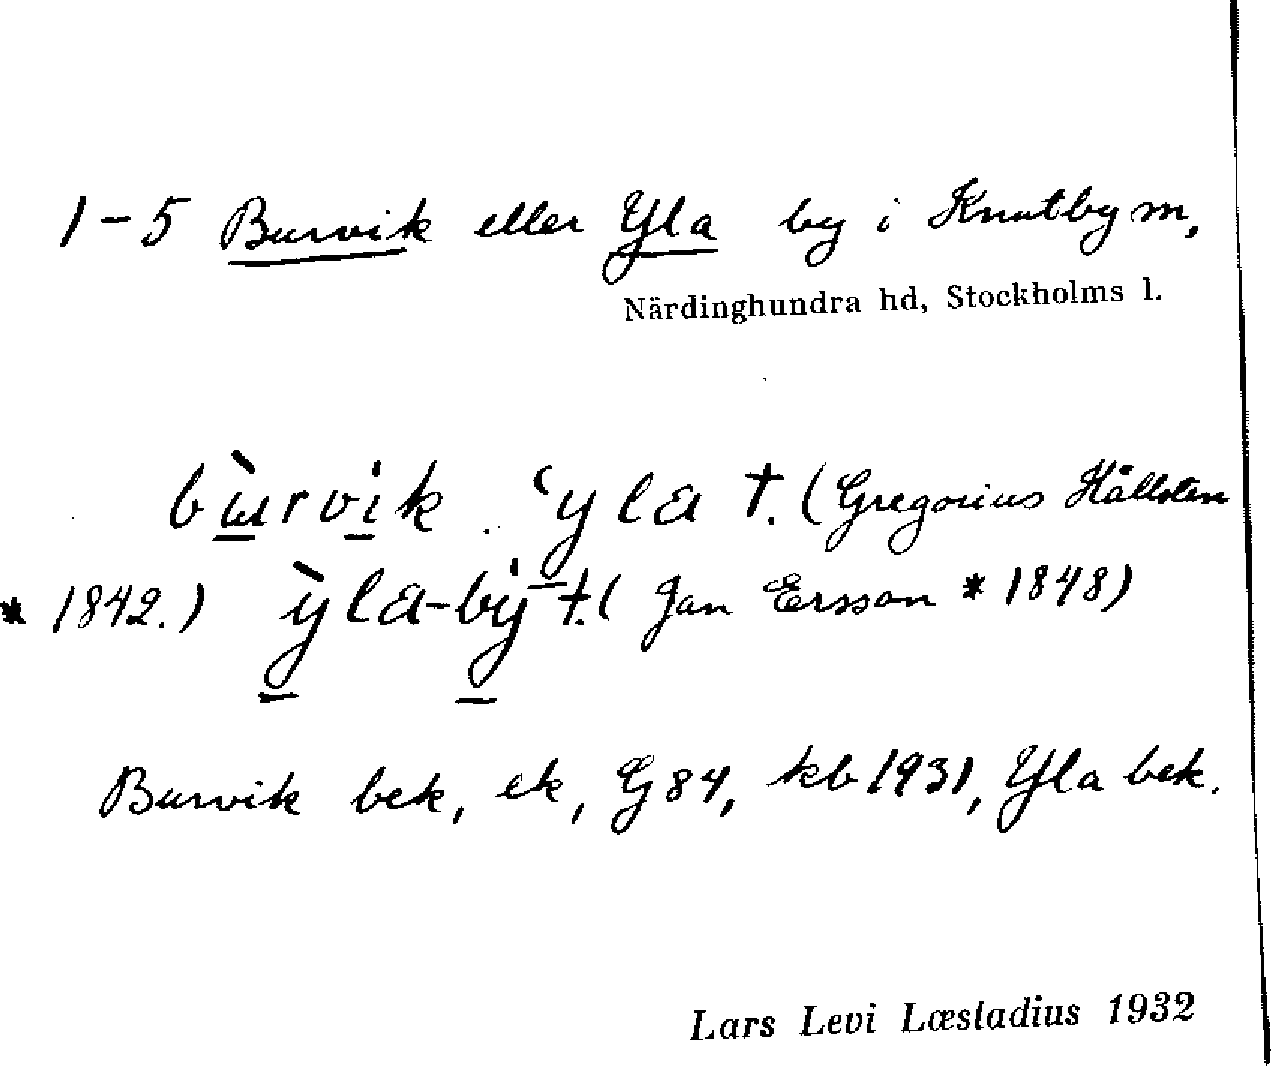 1-5 Burvik eller Yla by i Knutby sn,
Närdinghundra hd, Stockholms l.
bùrvik. ʻyla †. (Gregorius Hållsten
* 1842.) ỳla-by †. (Jan Ersson * 1848)
Burvik bek, ek, G 84, kb 1931, Yla bek.
Lars Levi Læstadius 1932